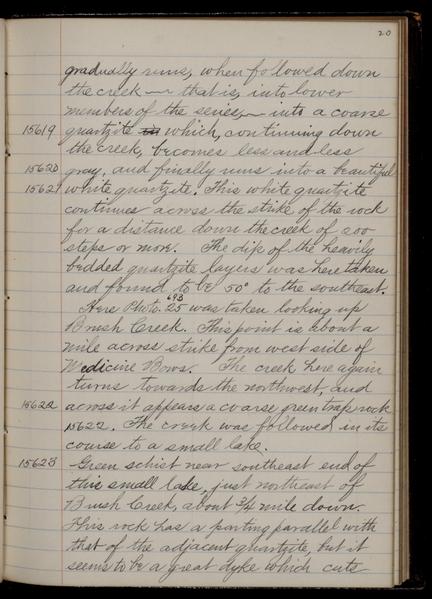 20
gradually runs, when followed down
the creek — that is, into lower
members of the series, — into a coarse
15619 quartzite which, continuing down
the creek, becomes less and less
15620 gray, and finally runs into a beautiful
15621 white quartzite. This white quartzite
continues across the strike of the rock
for a distance down the creek of 200
steps or more. The dip of the heavily
bedded quartzite layers was here taken
and found to be 50° to the southeast.
Here Photo. 25 693 was taken looking up
Brush Creek. This point is about a
mile across strike from west side of
Medicine Bows. The creek here again
turns towards the northwest, and
15622 across it appears a coarse green trap rock
15622. The creek was followed in its
course to a small lake.
15623 Green schist near southeast end of
this small lake, just northeast of
Brush Creek, about 3/4 mile down.
This rock has a parting parallel with
that of the adjacent quartzite, but it
seems to be a great dyke which cuts